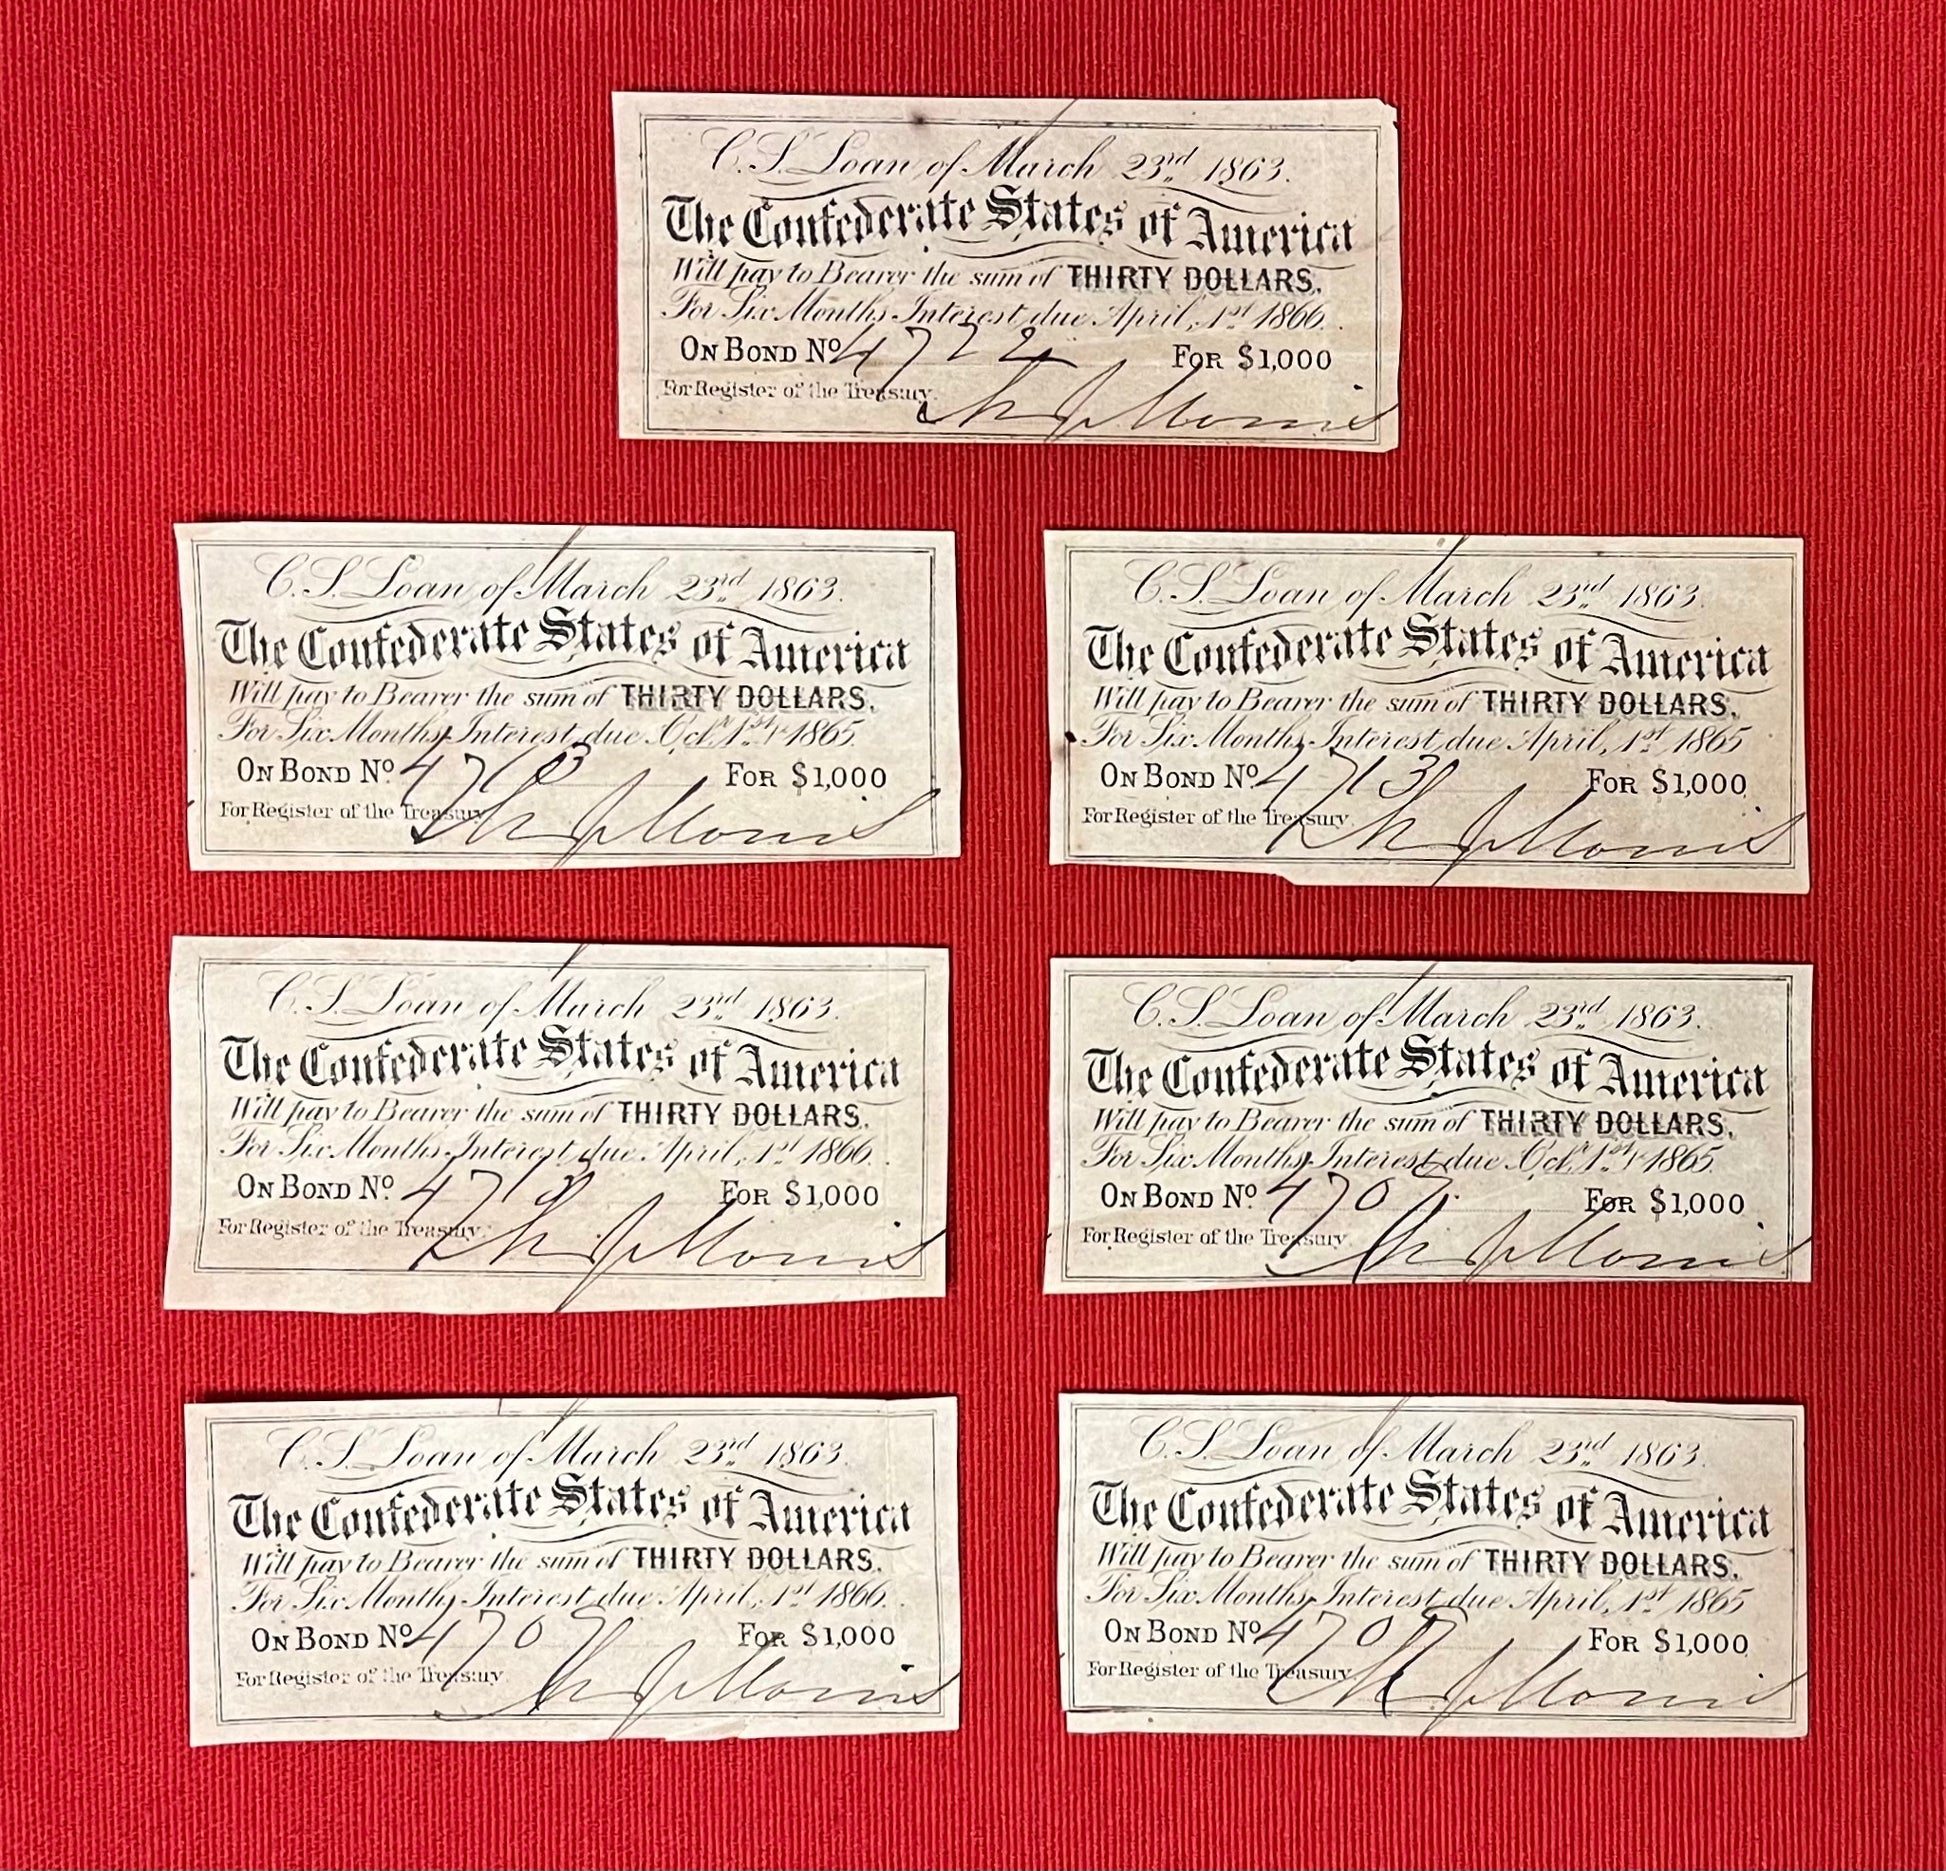 C. S. Loan of March 23rd 1863.
The Confederate States of America
Will pay to Bearer the sum of THIRTY DOLLARS.
For Six Months Interest due April, 1st 1866.
ON BOND No 4722 FOR $1,000
For Register of the Treasury.
C. S. Loan of March 23rd 1863.
The Confederate States of America
Will pay to Bearer the sum of THIRTY DOLLARS.
For Six Months Interest due Oct. 1st 1865.
ON BOND No. 4713 FOR $1,000
For Register of the Treasury.
C. S. Loan of March 23rd 1863.
The Confederate States of America
Will pay to Bearer the sum of THIRTY DOLLARS.
For Six Months Interest due April, 1st 1865
ON BOND No. 4713 FOR $1,000
For Register of the Treasury.
C. S. Loan of March 23rd 1863.
The Confederate States of America
Will pay to Bearer the sum of THIRTY DOLLARS.
For Six Months Interest due April, 1st 1866.
ON BOND No. 4713 FOR $1,000
For Register of the Treasury.
C. S. Loan of March 23rd 1863.
The Confederate States of America
Will pay to Bearer the sum of THIRTY DOLLARS.
For Six Months Interest due Oct. 1st 1865.
ON BOND No. 4709 FOR $1,000
For Register of the Treasury.
C. S. Loan of March 23rd 1863.
The Confederate States of America
Will pay to Bearer the sum of THIRTY DOLLARS.
For Six Months Interest due April, 1st 1866.
ON BOND No 4709 FOR $1,000
For Register of the Treasury.
C. S. Loan of March 23rd 1863.
The Confederate States of America
Will pay to Bearer the sum of THIRTY DOLLARS.
For Six Months Interest due April, 1st 1865
ON BOND No 4709 FOR $1,000
For Register of the Treasury.